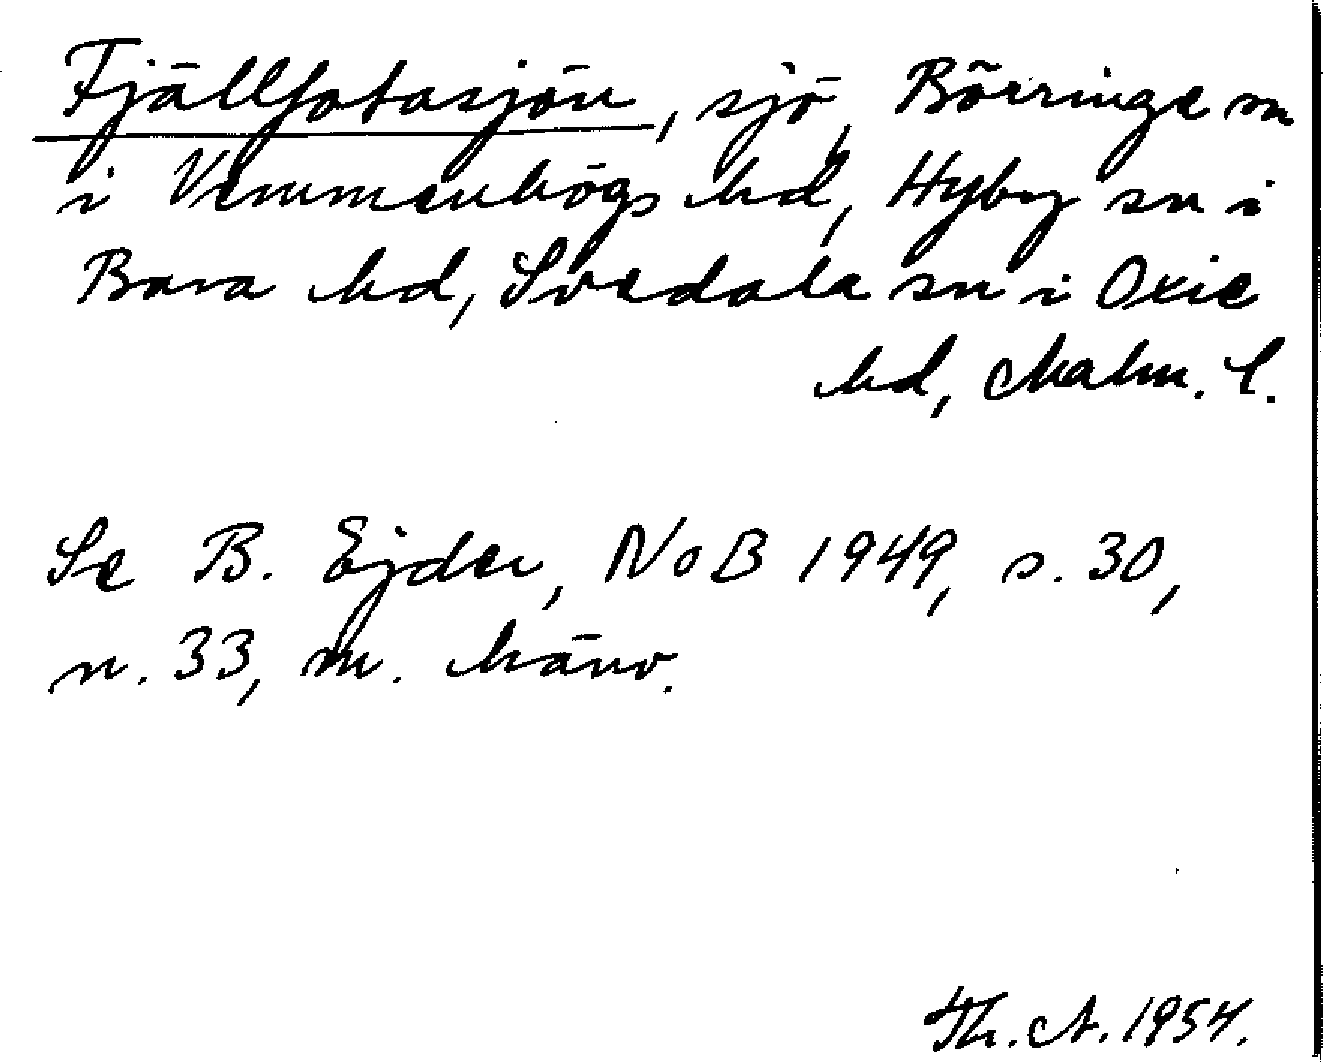 Fjällfotasjön, sjö, Börringe sn
i Vemmenhögs hd, Hyby sn i
Bara hd, Svedala sn i Oxie
hd, Malm. l.
Se B. Ejder, NoB 1949, s. 30,
n. 33, m. hänv.
Th. A. 1954.